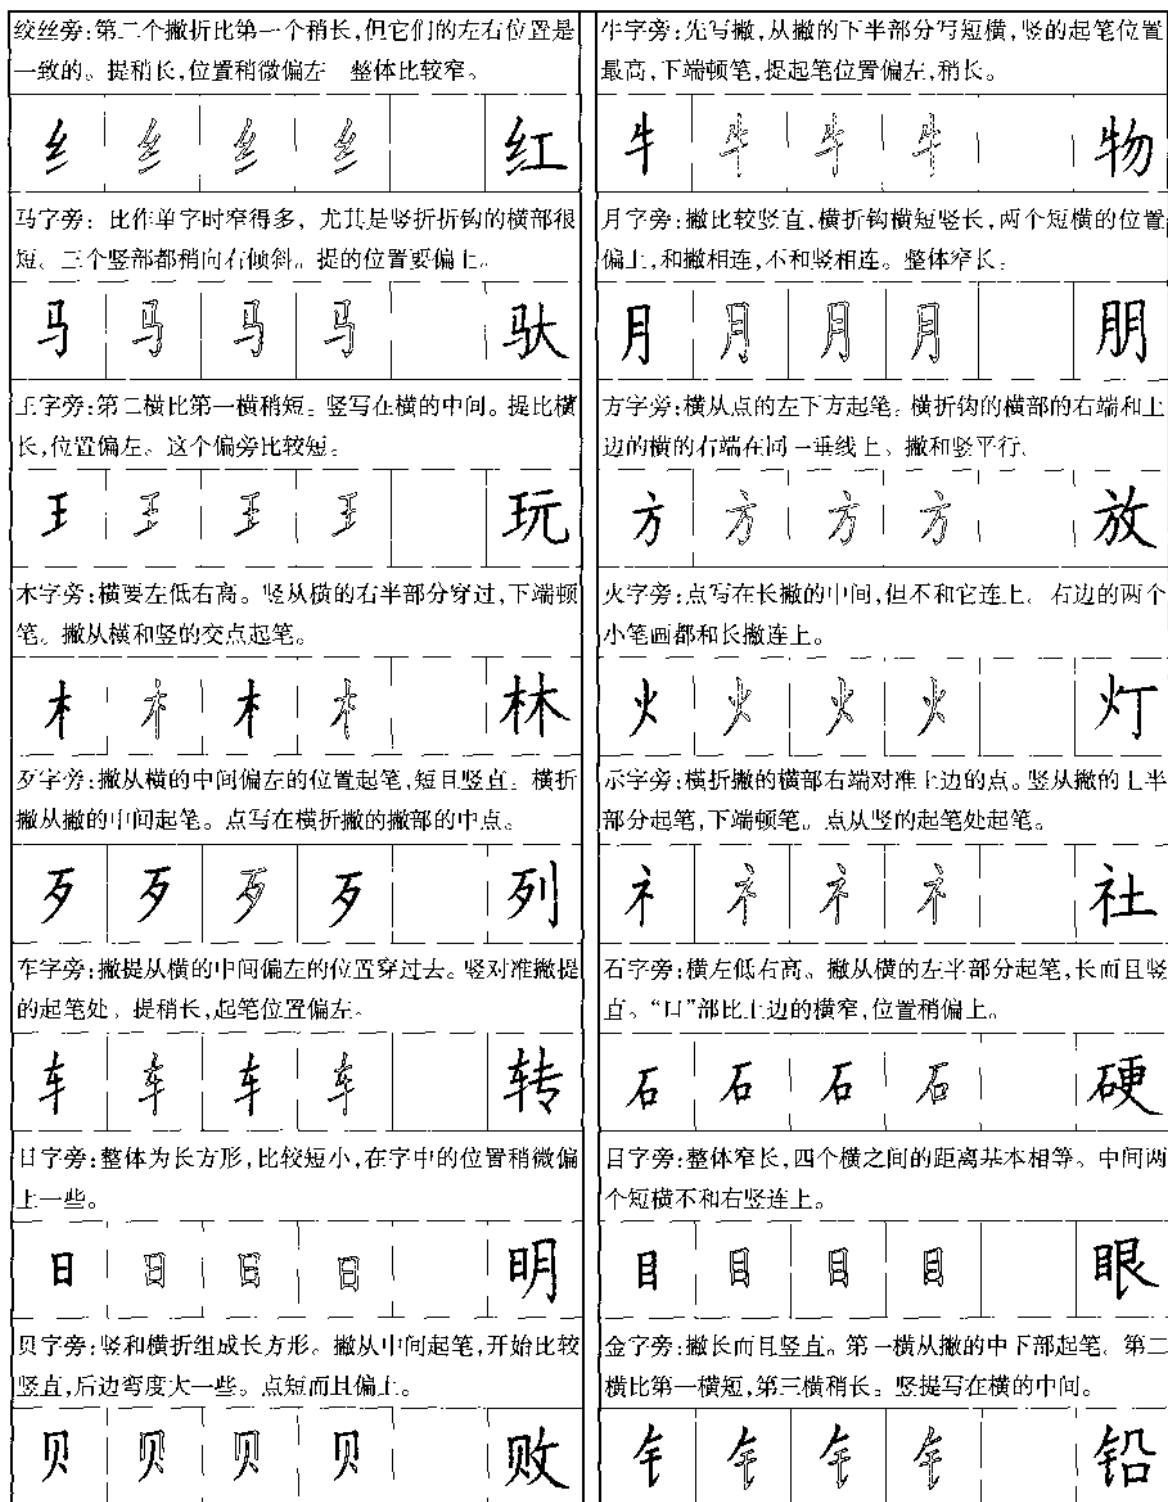 绞丝旁:第二个撇折比第一个稍长,但它们的左右位置是
一致的。提稍长,位置稍微偏左 整体比较窄。
纟 纟 纟 纟 红
马字旁: 比作单字时窄得多, 尤其是竖折折钩的横部很
短。三个竖部都稍向右倾斜。提的位置要偏上。
马 马 马 马 驮
王字旁:第二横比第一横稍短。竖写在横的中间。提比横
长,位置偏左。这个偏旁比较短。
王 王 王 王 玩
木字旁:横要左低右高。竖从横的右半部分穿过,下端顿
笔。撇从横和竖的交点起笔。
木 木 木 木 林
歹字旁:撇从横的中间偏左的位置起笔,短且竖直。横折
撇从撇的中间起笔。点写在横折撇的撇部的中点。
歹 歹 歹 歹 列
车字旁:撇提从横的中间偏左的位置穿过去。竖对准撇提
的起笔处。提稍长,起笔位置偏左。
车 车 车 车 转
日字旁:整体为长方形,比较短小,在字中的位置稍微偏
上一些。
日 日 日 日 明
贝字旁:竖和横折组成长方形。撇从中间起笔,开始比较
竖直,后边弯度大一些。点短而且偏上。
贝 贝 贝 贝 败
牛字旁:先写撇,从撇的下半部分写短横,竖的起笔位置
最高,下端顿笔,提起笔位置偏左,稍长。
牛 牛 牛 牛 物
月字旁:撇比较竖直,横折钩横短竖长,两个短横的位置
偏上,和撇相连,不和竖相连。整体窄长。
月 月 月 月 朋
方字旁:横从点的左下方起笔。横折钩的横部的右端和上
边的横的右端在同一垂线上。撇和竖平行。
方 方 方 方 放
火字旁:点写在长撇的中间,但不和它连上。右边的两个
小笔画都和长撇连上。
火 火 火 火 灯
示字旁:横折撇的横部右端对准上边的点。竖从撇的上半
部分起笔,下端顿笔。点从竖的起笔处起笔。
礻 礻 礻 礻 社
石字旁:横左低右高。撇从横的左半部分起笔,长而且竖
直。“口”部比上边的横窄,位置稍偏上。
石 石 石 石 硬
目字旁:整体窄长,四个横之间的距离基本相等。中间两
个短横不和右竖连上。
目 目 目 目 眼
金字旁:撇长而且竖直。第一横从撇的中下部起笔。第二
横比第一横短,第三横稍长。竖提写在横的中间。
钅 钅 钅 钅 铅